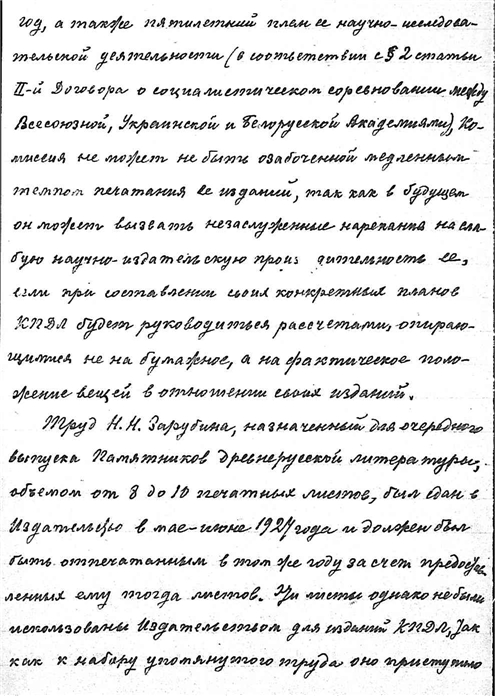 год, а также пятилетний план ее научно-исследова-
тельской деятельности (в соответствии с § 2 статьи
II-й Договора о социалистическом соревновании между
Всесоюзной, Украинской и Белорусской Академиями), Ко-
миссия не может не быть озабоченной медленным
темпом печатания ее изданий, так как в будущем
он может вызвать незаслуженные нарекания на сла-
бую научно-издательскую произ дительность ее,
если при составлении своих конкретных планов
КПДЛ будет руководиться рассчетами, опираю-
щимися не на бумажное, а на фактическое поло-
жение вещей в отношении своих изданий.
Труд Н.Н. Зарубина, назначенный для очередного
выпуска Памятников древнерусской литературы,
объемом от 8 до 10 печатных листов, был сдан в
Издательство в мае-июне 1927 года и должен был
быть отпечатанным в том же году за счет предостав-
ленных ему тогда листов. Эти листы однако не были
использованы Издательством для изданий КПДЛ, так
как к набору упомянутого труда оно приступило